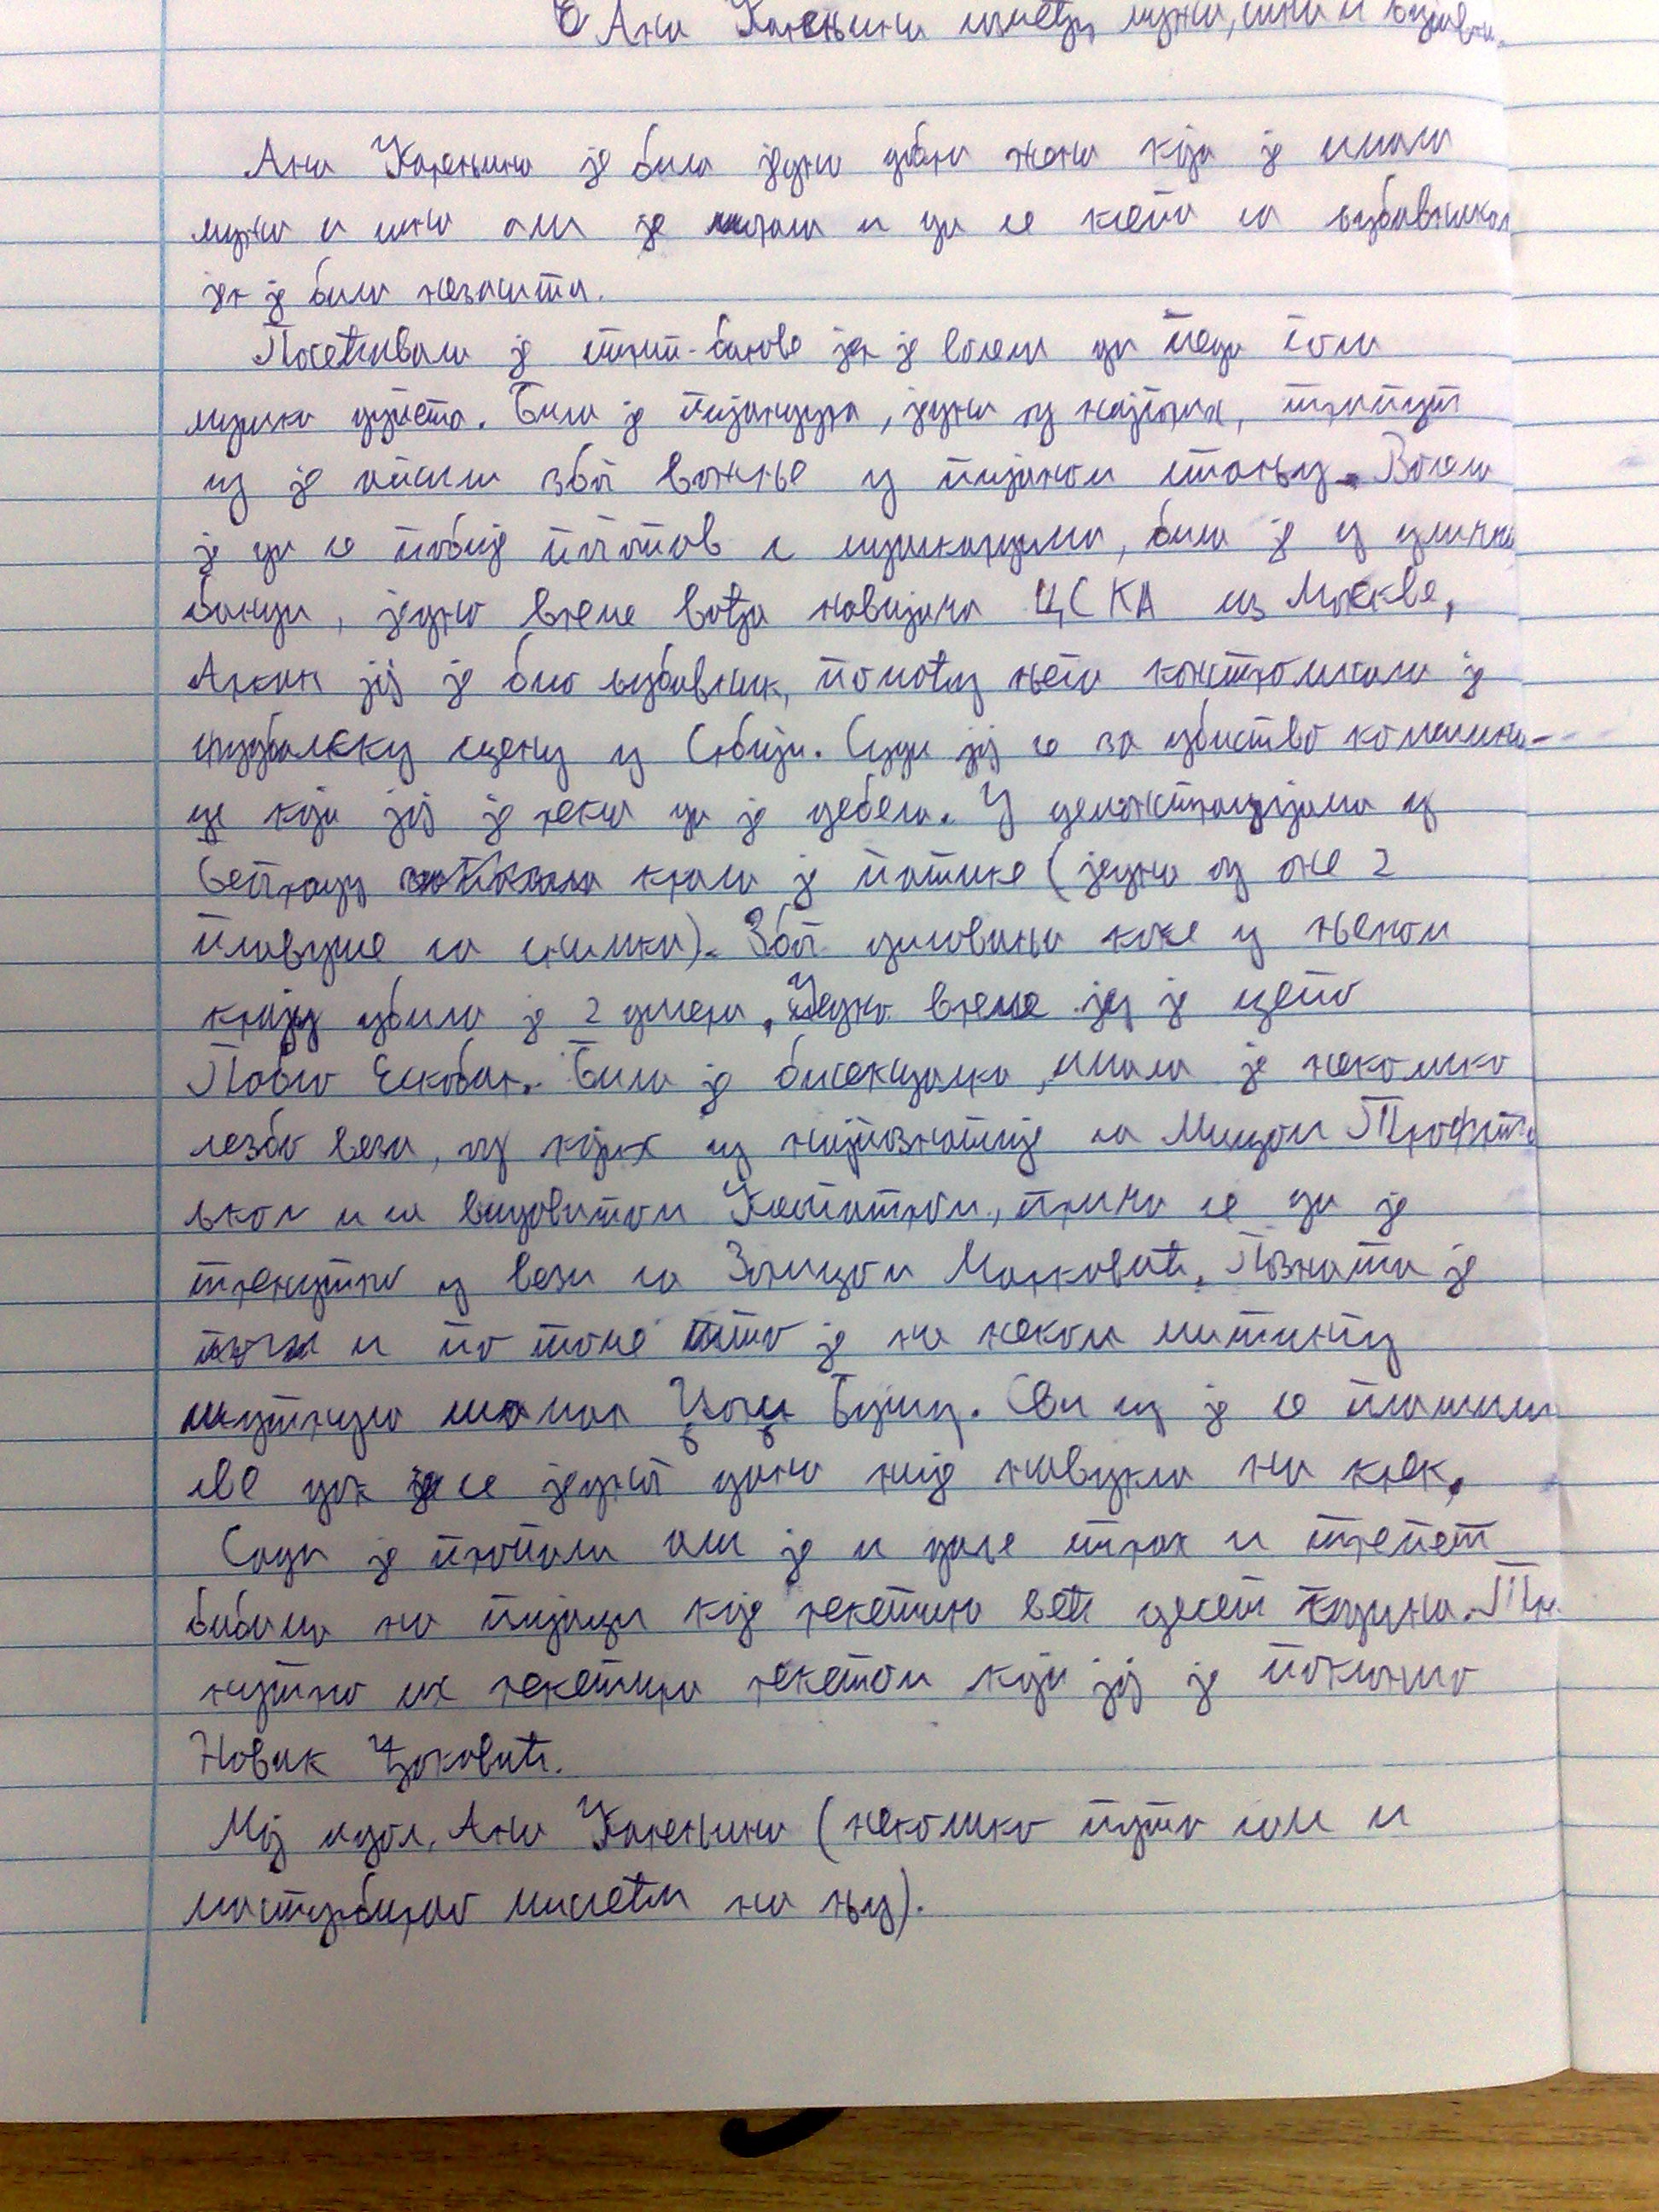 Ана Карењина између мужа, сина и љубави
Ана Карењина је била једна добра жена која је имала
мужа и сина али је морала и да се кеба са љубавником
јер је била незасита.
Посећивала је стрип-барове јер је волела да гледа гола
мушка дупета. Била је пијандура, једна од најгорих, трипут
су је апсили због вожње у пијаном стању. Волела
је да се побије поготов с мушкарцима, била је у уличној
банди, једно време вођа навијача ЦСКА из Москве,
Аркан јој је био љубавник, помоћу њега контролисала је
фудбалску сцену у Србији. Суди јој се за убиство комшини-
це која јој је рекла да је дебела. У демонстрацијама у
Београду крала је патике (једна од оне 2
плавуше са снимка). Због диловања коке у њеном
крају убила је 2 дилера. Једно време јој је цепо
Пабло Ескобар. Била је бисексуалка, имала је неколико
лезбо веза, од којих су најпознатије са Мицом Трофрта-
љком и са видовитом Клеопатром, прича се да је
тренутно у вези са Зорицом Марковић. Позната је
и по томе што је на неком митингу
шутнула шамар Џорџ Бушу. Сви су је се плашили
све док се једног дана није навукла на крек.
Сада је пропала али је и даље страх и трепет
бабама на пијаци које рекетира већ десет година. Тре-
нутно их рекетира рекетом који јој је поклонио
Новак Ђоковић.
Мој идол, Ана Карењина (неколико пута сам и
мастурбирао мислећи на њу).